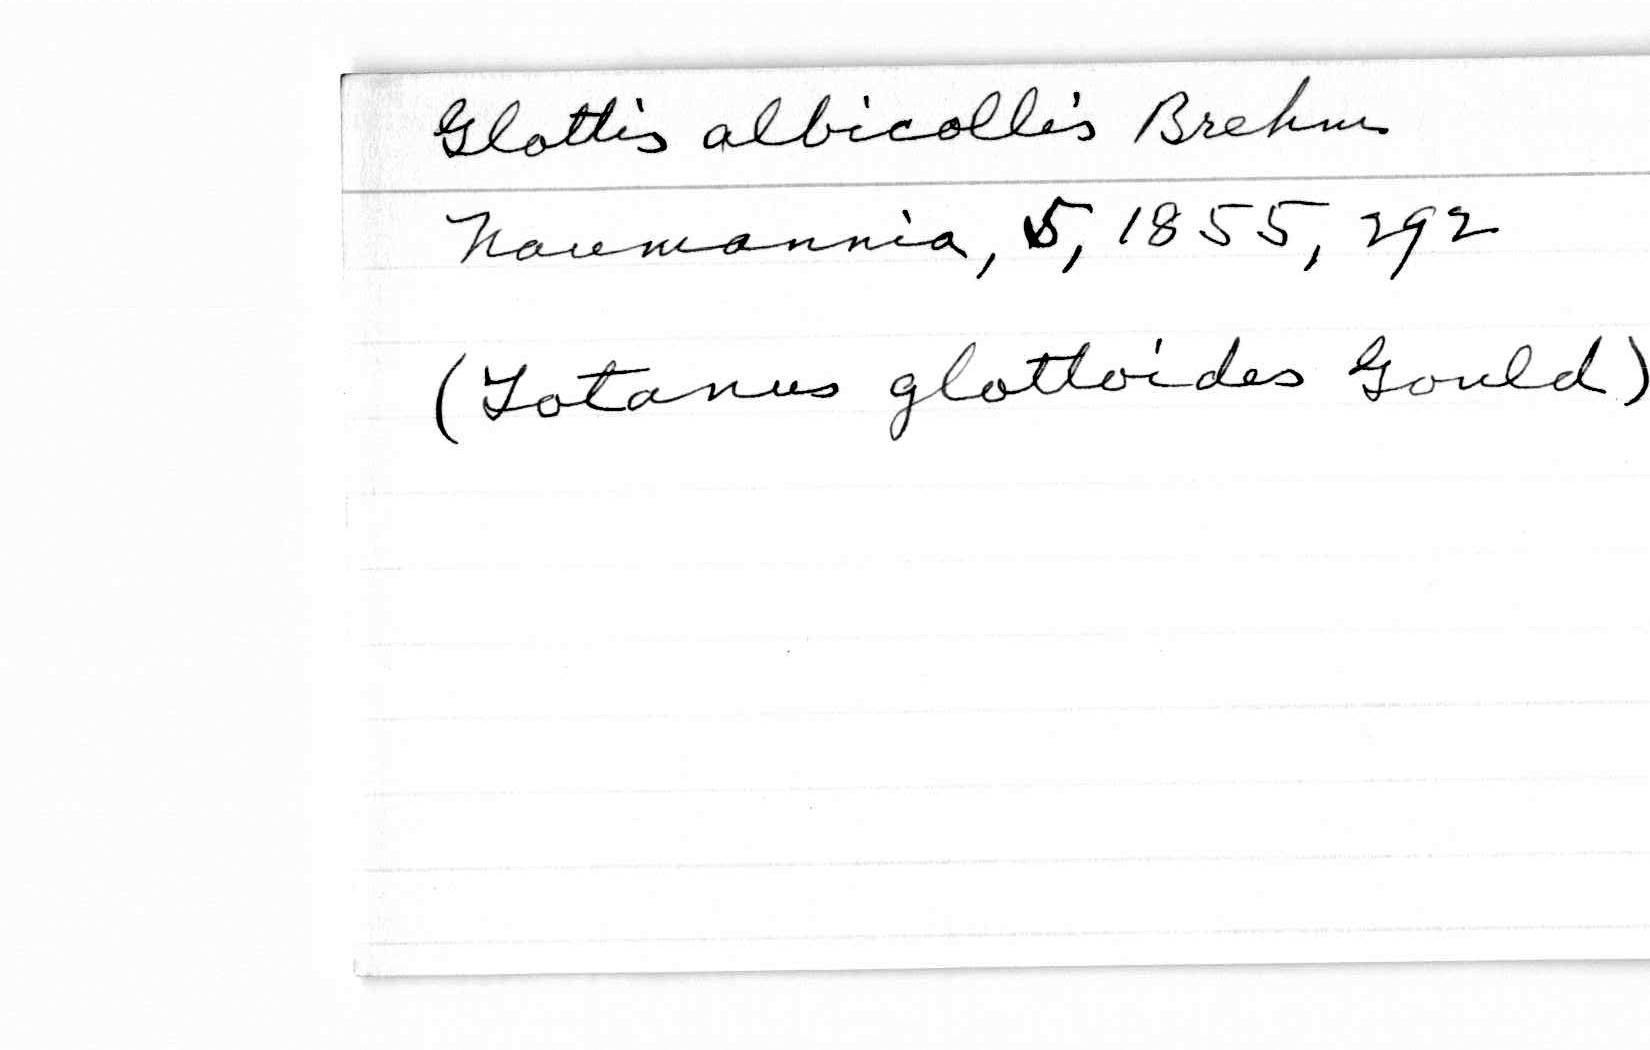 Glottis albicollis Brehm
Naumannia, 5, 1855, 292
(Totanus glottoides Gould)